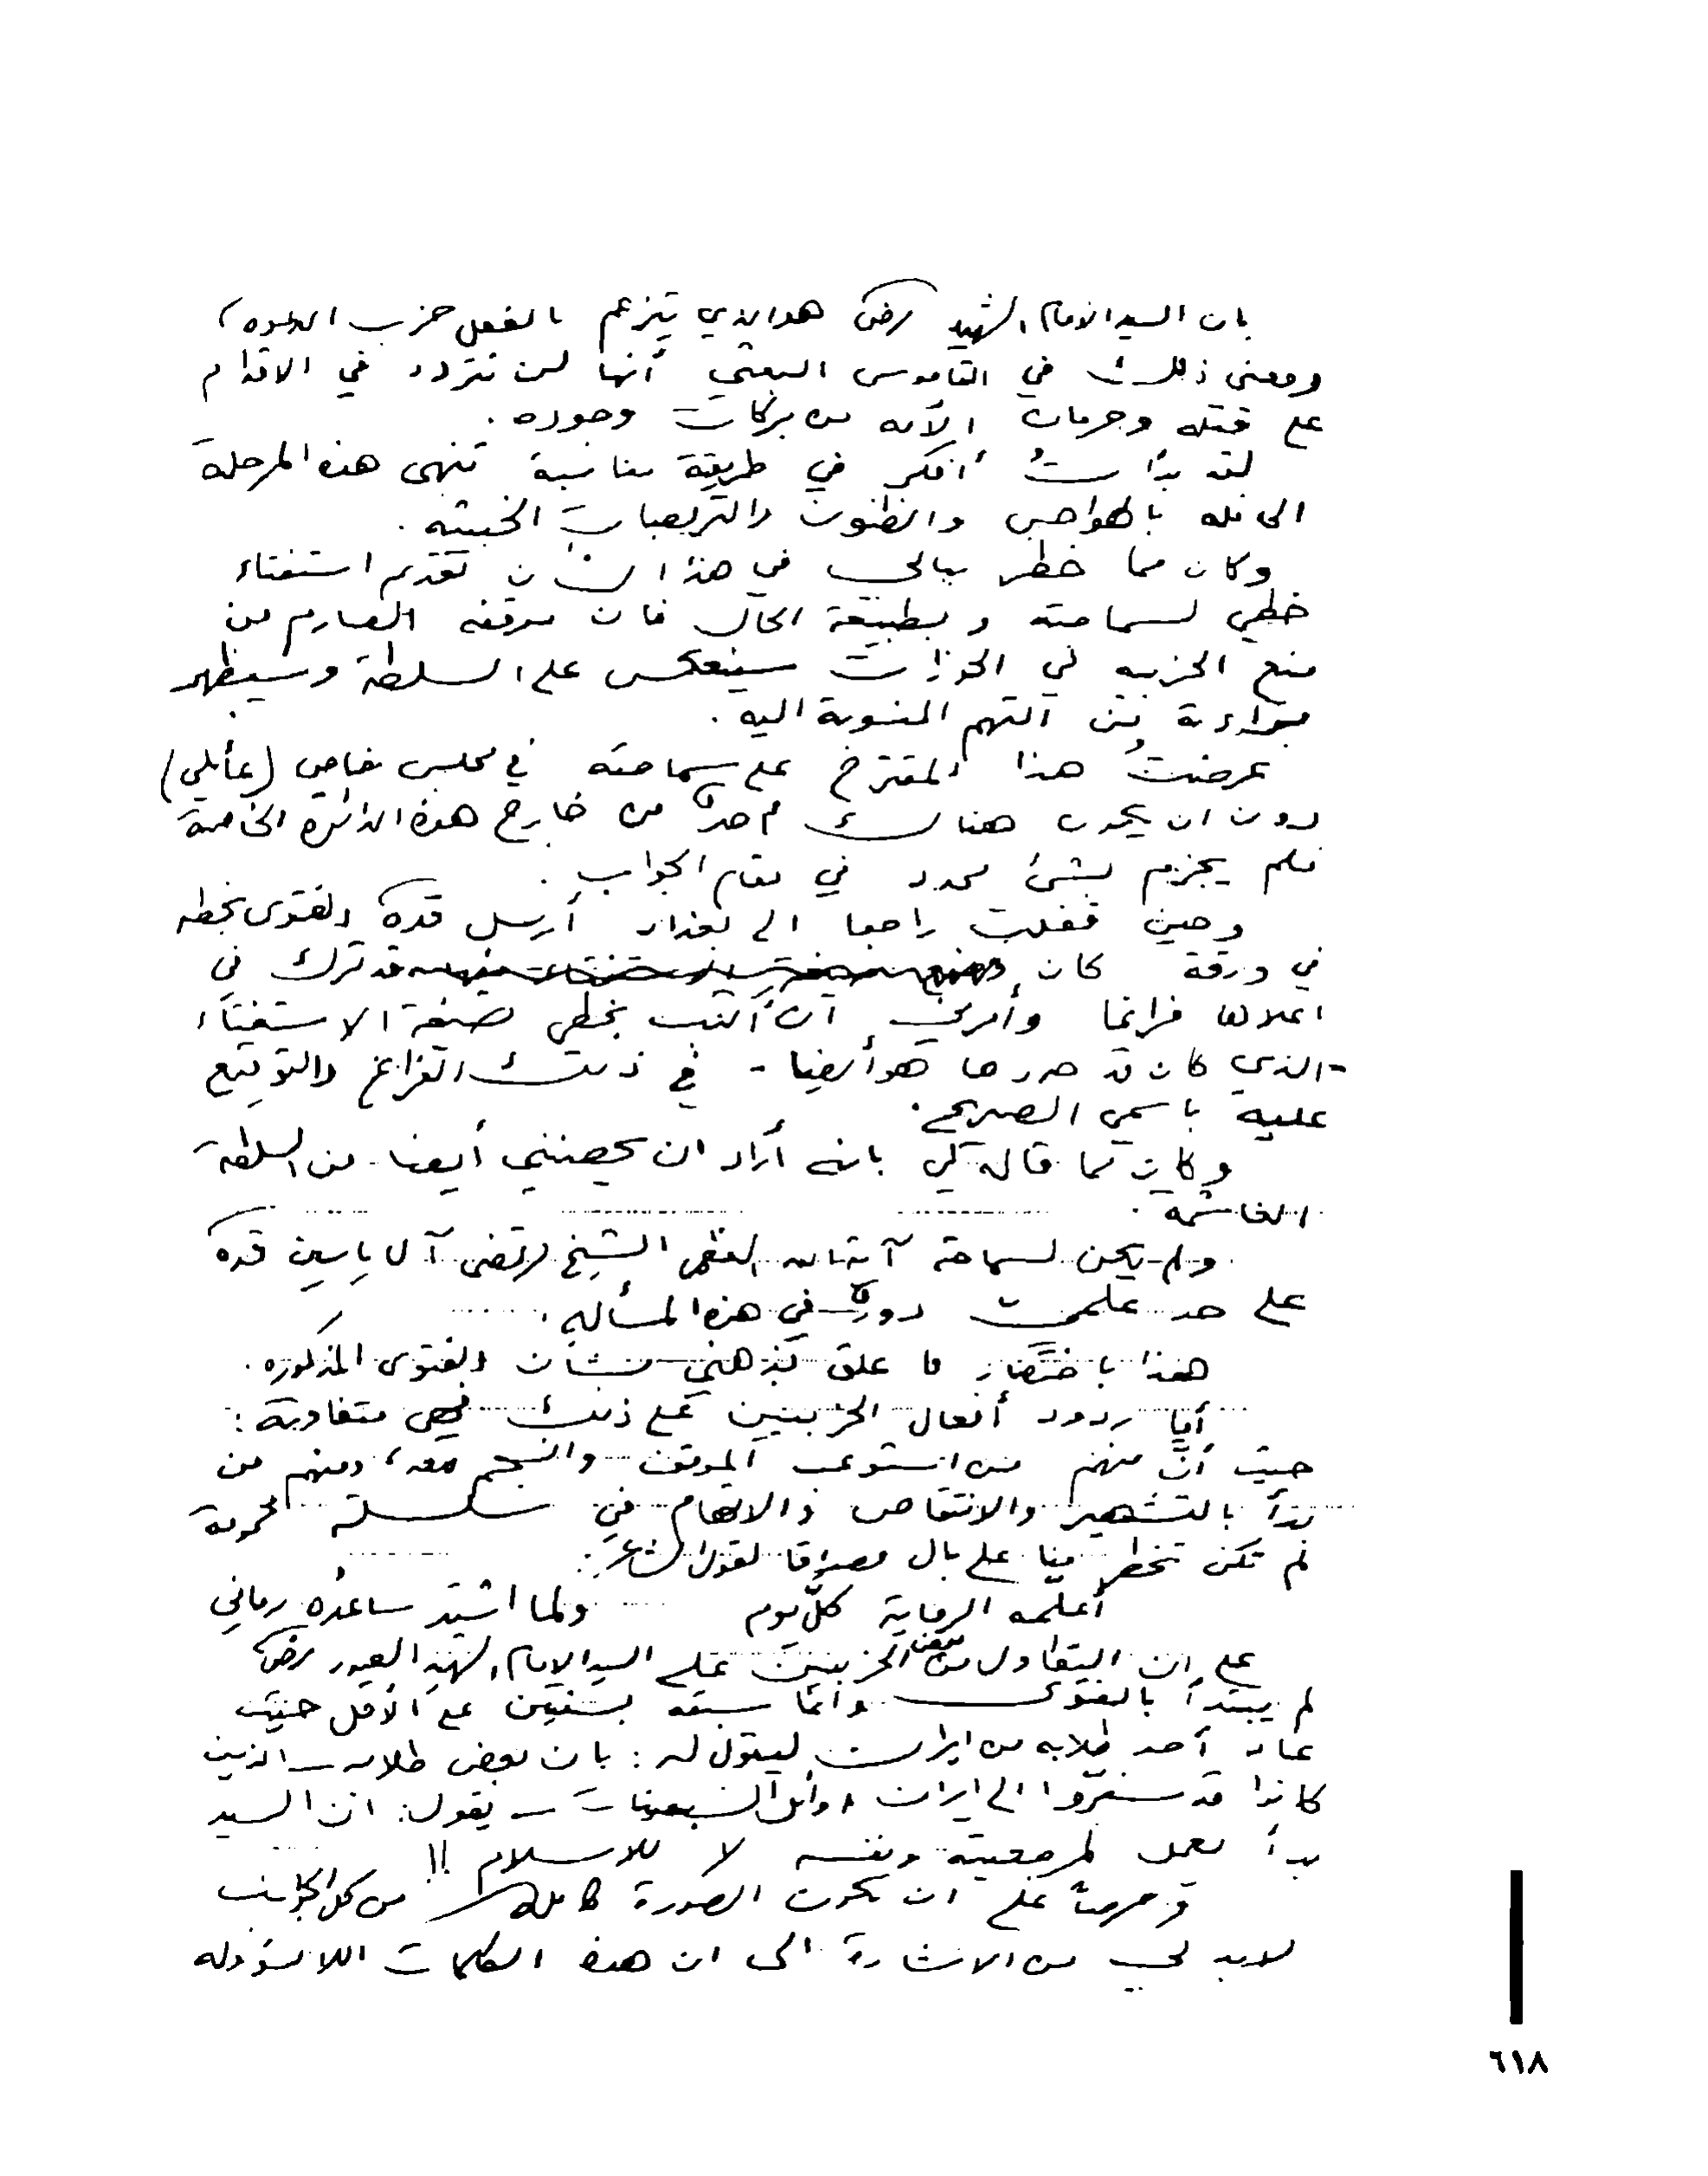 بان السيد الامام الشهيد رض هو الذي يتزعم بالفعل حزب الدعوة،
ومعنى ذلك في القاموس البعثي أنها لن تتردد في الاقدام
على قتله وحرمان الأمه من بركات وجوده.
لقد بدأتُ أفكر في طريقة مناسبة تنهى هذه المرحلة
الحافله بالهواجس والظنون والتربصات الخبيثه.
وكان مما خطر ببالي في هذا الشأن تقديم استفتاء
خطي لسماحته وبطبيعة الحال فان موقفه الصارم من
منع الحزبيه في الحوزات سينعكس على السلطة وسيظهر
براءته من التهم المنسوبة اليه.
عرضتُ هذا المقترح على سماحته في مجلس خاص (عائلي)
دون ان يكون هناك احدٌ من خارج هذه الدائرة الخاصة
فلم يجزم بشئ محدد في مقام الجواب.
وحين قفلت راجعا الى بغداد أرسل قده الفتوى بخطه
في ورقة كان قد ترك في
اعلاها فراغا وأمرني أن أكتب بخطي صيغة الاستفتاء
-الذي كان قد حررها هو أيضا- في ذلك الفراغ والتوقيع
عليه باسمي الصريح.
وكان مما قاله لي بانه أراد ان يحصنني أيضا من السلطة
الغاشمة.
ولم يكن لسماحة آية الله العظمى الشيخ مرتضى آل ياسين قده
على حد علمي دورٌ في هذه المسأله.
هذا باختصار ما علق بذهني بشأن الفتوى المذكوره.
أما ردود أفعال الحزبيين على ذلك فهي متفاوتة:
حيث أنّ منهم من استوعب الموقف وانسجم معه، ومنهم من
بدأ بالتشهير والانتقاص والاتهام في سلسلة محمومة
لم تكن تخطر منا على بال مصداقا لقول الشاعر:
أعلّمه الرماية كلّ يوم ولما اشتد ساعده رماني
على ان التطاول من بعض الحزبيين على السيد الامام الشهيد الصدر رض
لم يبتدأ بالفتوى وانما سبقه بسنتين على الأقل حيث
عاد أحد طلابه من ايران ليقول له: بان بعض طلابه - الذين
كانوا قد سفّروا الى ايران اوائل السبعينات - يقول: ان السيد
بدأ يعمل لمرجعيته ونفسه لا للاسلام!!
وحرصاً على ان تكون الصورة كاملة من كل الجوانب
لابد لي من الاشارة الى ان هذه الكلمات اللامسؤوله
٦١٨